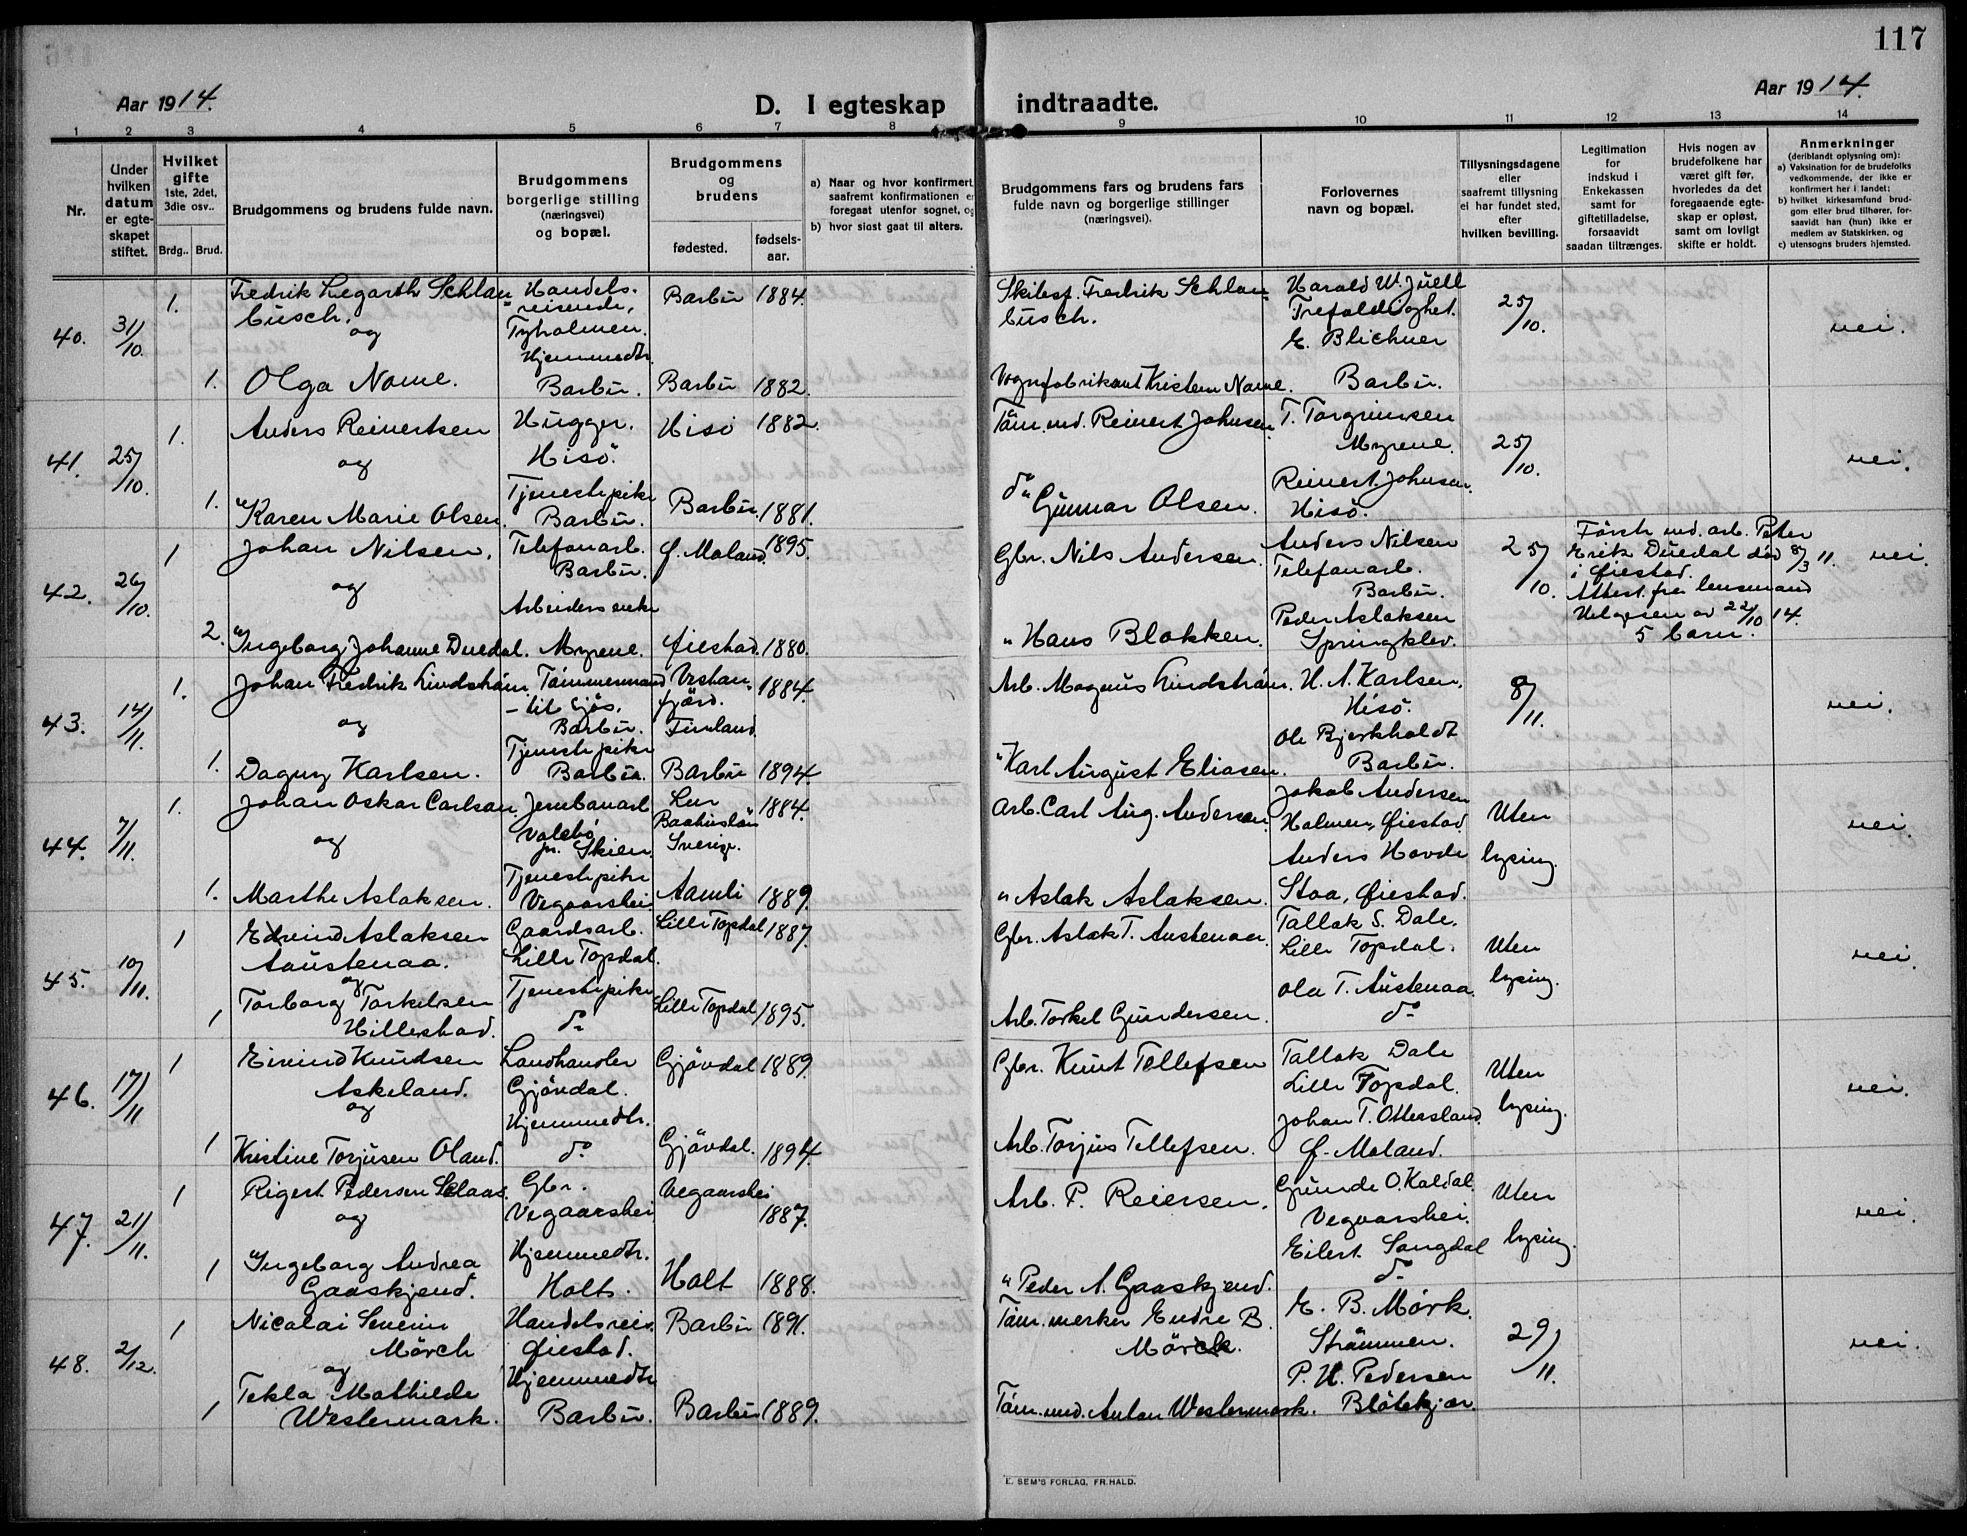 117
Aar 1914.
D. I egteskap indtraadte.
Aar 1914.
1 2 3 4 5 6 7 8 9 10 11 12 13 14
Nr.
Under hvilken datum er egteskapet stiftet.
Hvilket gifte 1ste, 2det, 3die osv..
Brdg.. Brud.
Brudgommens og brudens fulde navn.
Brudgommens borgerlige stilling (næringsvei) og bopæl.
Brudgommens og brudens
fødested.
fødsels-aar.
a) Naar og hvor konfirmert, saafremt konfirmationen er foregaat utenfor sognet, og
b) hvor sidst gaat til alters.
Brudgommens fars og brudens fars fulde navn og borgerlige stillinger (næringsvei).
Forlovernes navn og bopæl.
Tillysningsdagene eller saafremt tillysning ei har fundet sted, efter hvilken bevilling.
Legitimation for indskud i Enkekassen samt for giftetilladelse, forsaavidt saadan tiltrænges.
Hvis nogen av brudefolkene har været gift før, hvorledes da det foregaaende egteskap er opløst, samt om lovligt skifte er holdt.
Anmerkninger (deriblandt oplysning om): a) Vaksination for de brudefolks vedkommende, der ikke er konfirmert her i landet; b) hvilket kirkesamfund brudgom eller brud tilhører, forsaavidt han (hun) ikke er medlem av Statskirken, og c) utensogns bruders hjemsted.
40. 31/10. 1. Fredrik Legarth Schlanbusch. Handelsreisende, Tyholmen. Barbu 1884. Skibsf. Fredrik Schlanbusch. Harald W. Juell Trefoldighet. 25/10. nei.
og
1. Olga Name. Hjemmedtr. Barbu. Barbu 1882. Vognfabrikant Kristen Name. E. Blichner Barbu.
41. 25/10. 1. Anders Reinertsen Hugger. Hisö. Hisö 1882. Töm.md. Reinert Johnsen. T. Torgrimsen Myrene. 25/10. nei.
og
1. Karen Marie Olsen. Tjenestepike Barbu. Barbu. 1881. do Gunnar Olsen. Reinert Johnsen. Hisö.
42. 26/10. 1 Johan Nilsen. Telefonarb. Barbu. Ö. Moland. 1895. Gbr. Nils Andersen. Anders Nilsen Telefonarb. Barbu. 25/10. Först md. arb. Peter Erik Duedal död 8/3 11. i Öiestad. Attest fra lensmand av 22/10 14. 5 barn. nei.
og
2. Ingeborg Johanne Duedal. Arbeidersenke Myrene. Öiestad. 1880. " Hans Blakken. Peder Aslaksen Springklev.
43. 14/11. 1. Johan Fredrik Lindström. Tömmermand - til sjös. Barbu. Vestanfjärd. Finland 1884. Arb. Magnus Lindström. H. A. Karlsen. Hisö. 8/11. nei.
og
1. Dagny Karlsen. Tjenestepike Barbu. Barbu 1894. " Karl August Eliasen. Ole Bjerkholdt Barbu.
44. 7/11. 1. Johan Oskar Carlson. Jernbanearb. Valebö pr. Skien. Lur Baahuslän Sverige. 1884. Arb. Carl Aug. Andersen. Jakob Andersen Holmen, Öiestad Uten lysing. nei.
og
1. Marthe Aslaksen. Tjenestepike Vegaarshei Aamli 1889. " Aslak Aslaksen. Anders Hovde Stoa, Öiestad.
45. 10/11. 1 Edvind Aslaksen Aaustenaa. Gaardsarb. Lille Topdal. Lille Topdal 1887. Gbr. Aslak T. Austenaa. Tallak S. Dale. Lille Topdal. Uten lysing. nei.
og
1 Torborg Torkelsen Hillestad. Tjenestepike do Lille Topdal 1895. Arb. Torkel Gundersen. Ola T. Austenaa. do
46. 17/11 1 Eivind Knudsen Askeland. Landhandler Gjövdal. Gjövdal 1889. Gbr. Knut Tellefsen Tallak Dale Lille Topdal. Uten lysing. nei.
og
1 Kristine Torjusen Oland. Hjemmedtr. do Gjövdal. 1894. Arb. Torjus Tellefsen. Johan T. Ottersland. Ö. Moland.
47. 21/11. 1 Rigert Pedersen Selaas. Gbr. Vegaarshei Vegaarshei 1887. Arb. P. Reiersen. Gunde O. Kaldal. Vegaarshei. Uten lysing. nei.
og
1 Ingeborg Andrea Gaaskjend. Hjemmedtr. Holt. Holt 1888. " Peder A. Gaaskjend. Eilert Songdal do
48. 2/12. 1 Nicolai Severin Mörch Handelsreis. Öiestad. Barbu 1891. Töm.merker Endre B. Mörck. E. B. Mörk. Strömmen. 29/11. nei.
og
1 Tekla Mathilde Westermark. Hjemmedtr Barbu. Barbu 1889. Töm.md. Anton Westermark. P. H. Pedersen Blötekjær.
E. SEM'S FORLAG, FR.HALD.